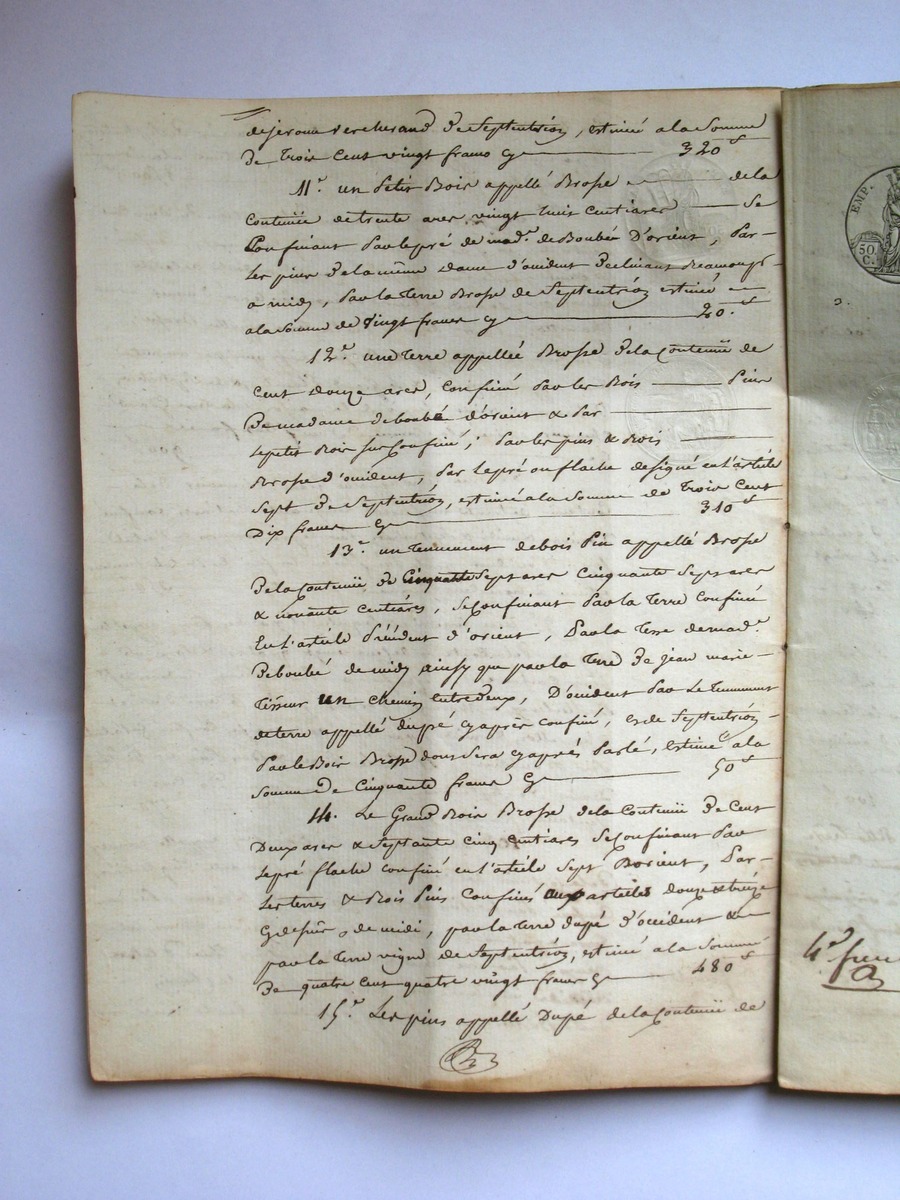 de jerome vercherand de Septentrion, estimée a la Somme
de Trois Cent vingt francs cy 320
11.e un Petit Bois appellé Brosse de la
Contenüe de trente ares vingt huit Centiares Se
Confinant Par le pré de mad.e de Boubée D'orient, Par
Les pins de la même dame d'occident
a midy, Par la Terre Brosse de Septentrion estimé
a la Somme de Vingt francs cy 20
12.e une Terre appellée Brosse de la Contenüe de
Cent douze ares, Confiné Par les Bois Pins
De madame de boubé d'orient & Par
Le petit Bois sus Confiné, Par les pins & Bois
Brosse d'occident, Par Le pré ou flache designé en L'article
Sept de Septentrion, estimé a la Somme de Trois Cent
Dix francs cy 310
13.e un Tennement de bois Pin appellé Brosse
De la Contenüe de Cinquante Sept ares Cinquante Sept ares
& nonante Centiares, Se Confinant Par la Terre Confiné
En L'article Précédent d'orient, Par la Terre de mad.e
De boubé de midy ainsy que par la Terre De jean marie
Tisseur un chemin entre deux, D'occident Par Le Tennement
de terre appellé dupé cy après confiné, & de Septentrion
Par le Bois Brosse dont Sera cy après Parlé, estimé a la
Somme De Cinquante francs Cy 50
14. Le Grand Bois Brosse de la Contenüe De Cent
Deux ares & Septante Cinq Centiares Se Confinant Par
Le pré flache confiné en L'article Sept D'orient, Par
Les terres & Bois Pins Confinés aux articles douze & treize
de midi, par la Terre dupé D'occident &
par la Terre vigne de Septentrion, estimé a la Somme
De quatre Cent quatre vingt francs Cy 480
15.e Les pins appellé Dupé de la Contenüe de
EMP.
50
C.